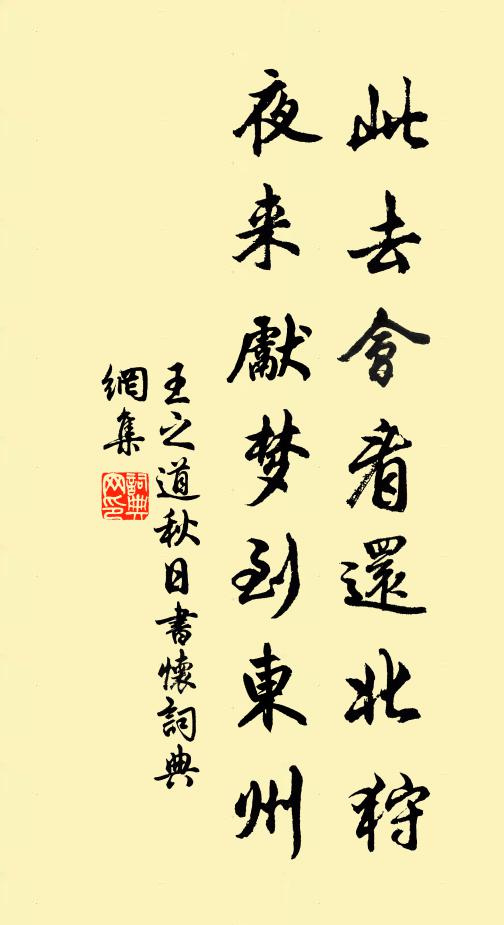 此去會看還北狩
夜来獻梦到東州
王之道秋日書懷詞典
網集
詞典
网印